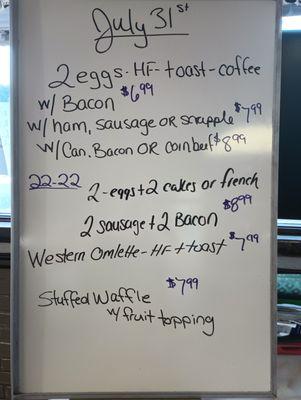 July 31st
2 eggs - HF - toast - coffee
w/ Bacon $6.99
w/ ham, sausage OR scrapple $7.99
w/ Can. Bacon OR corn beef $8.99
22-22 2-eggs + 2 cakes or french
2 sausage + 2 Bacon $8.99
Western Omlette - HF + toast $7.99
Stuffed Waffle $7.99
w/ fruit topping